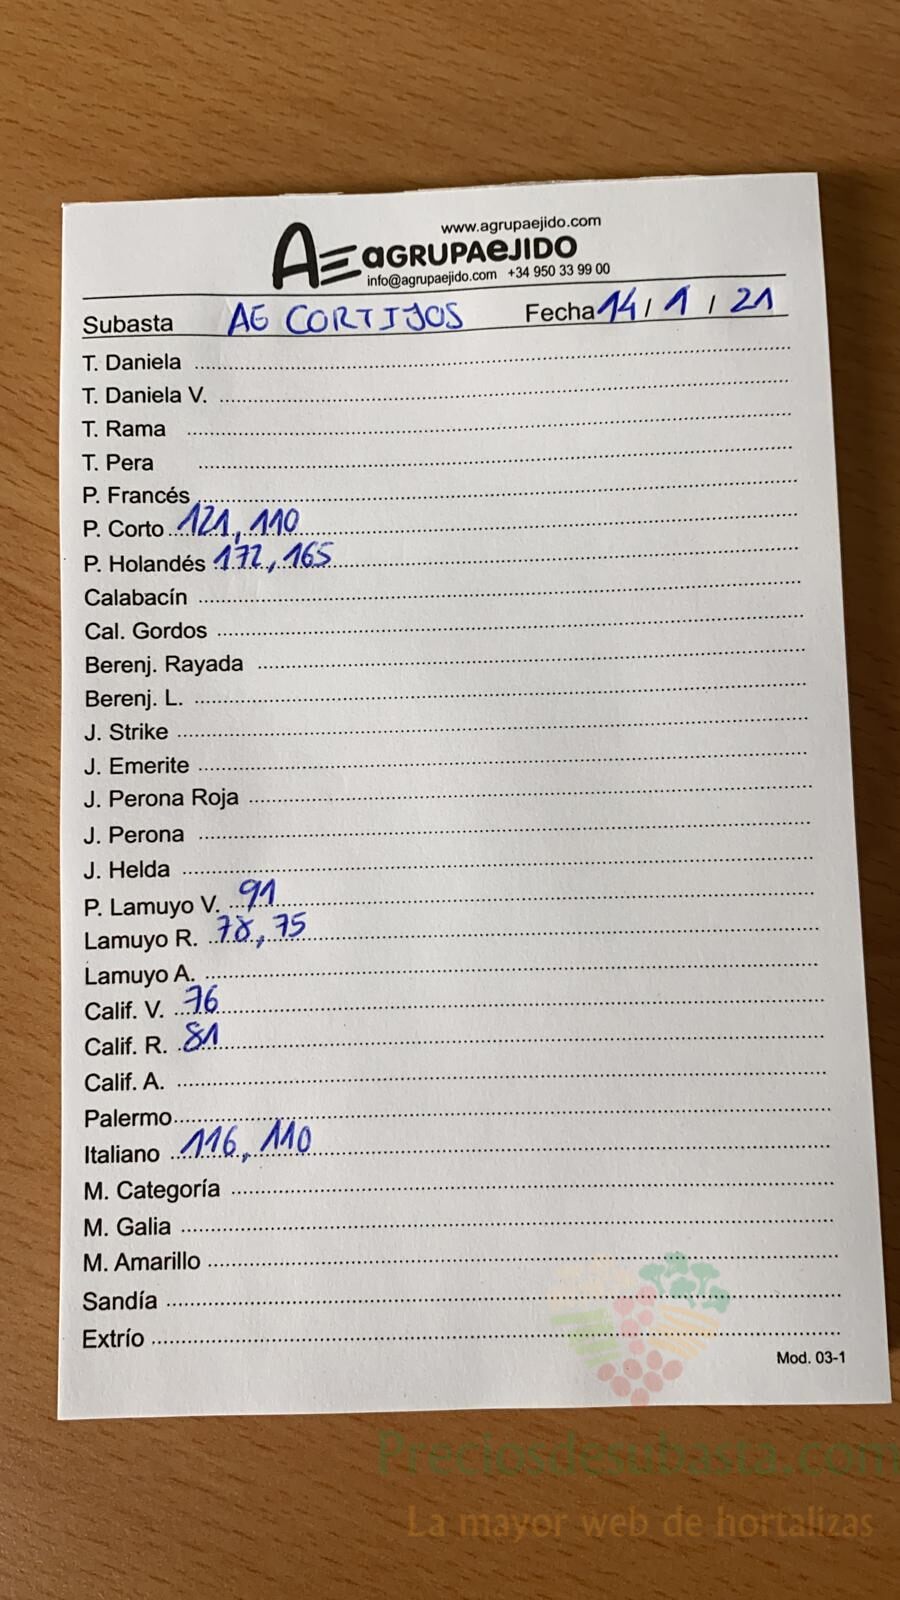 www.agrupaejido.com
AE aGRUPAeJIDO
info@agrupaejido.com +34 950 33 99 00
Subasta AE CORTIJOS Fecha 14 / 1 / 21
T. Daniela
T. Daniela V.
T. Rama
T. Pera
P. Francés
P. Corto 121, 110
P. Holandés 172, 165
Calabacín
Cal. Gordos
Berenj. Rayada
Berenj. L.
J. Strike
J. Emerite
J. Perona Roja
J. Perona
J. Helda
P. Lamuyo V. 91
Lamuyo R. 78, 75
Lamuyo A.
Calif. V. 76
Calif. R. 81
Calif. A.
Palermo
Italiano 116, 110
M. Categoría
M. Galia
M. Amarillo
Sandía
Extrío
Mod. 03-1
Preciosdesubasta.com
La mayor web de hortalizas